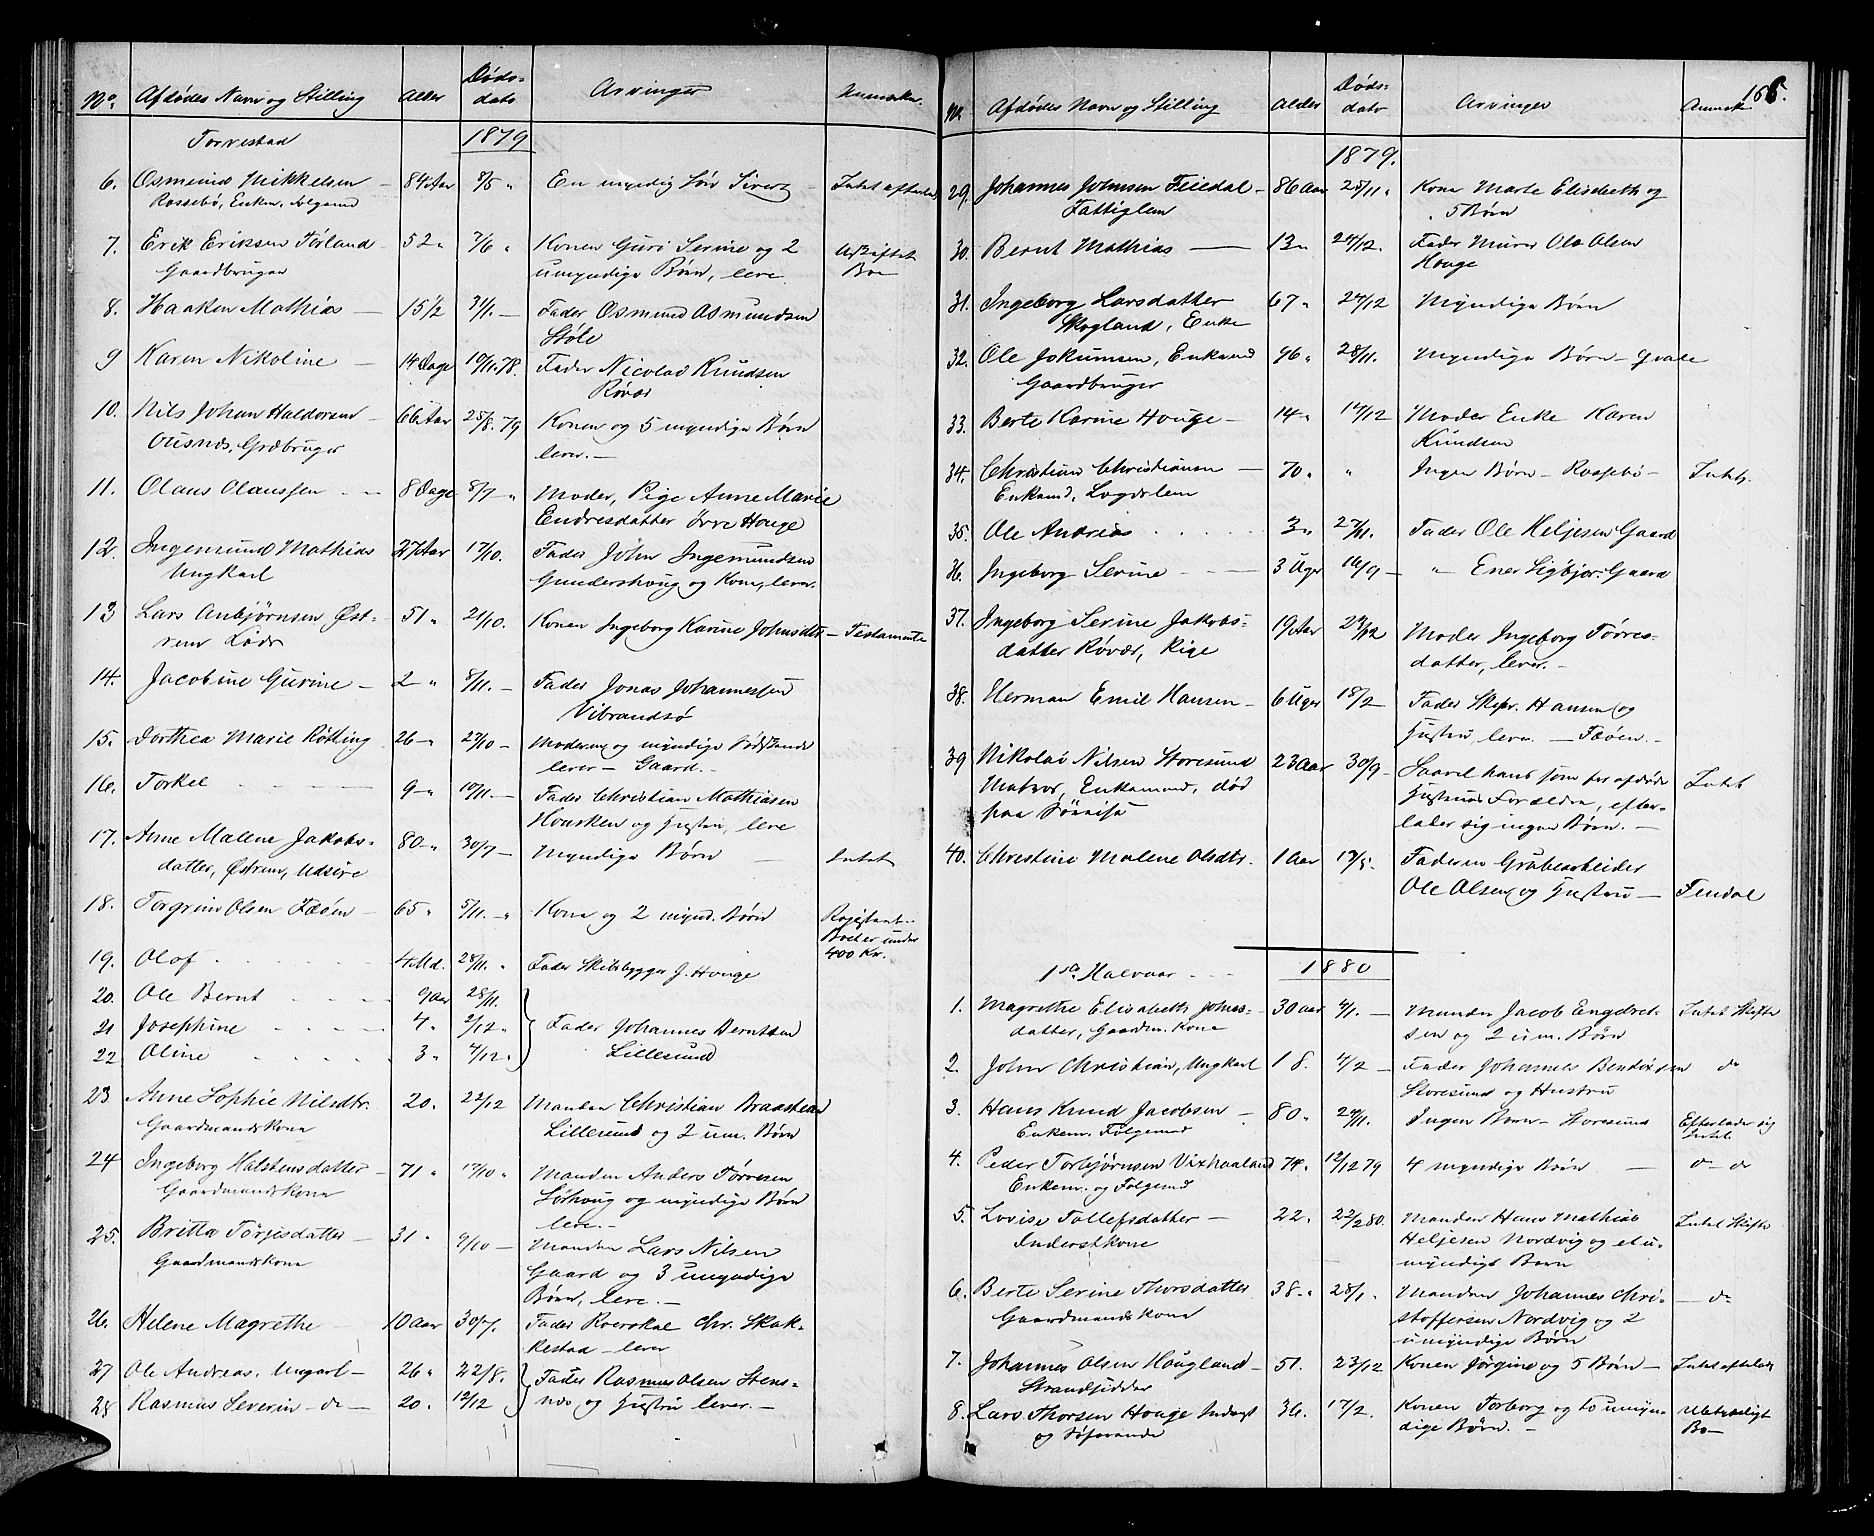 No. Afdødes Navn og Stilling Alder Døds-dato Arvinger Anmærkn.
Torvestad 1879
6. Osmund Mikkelsen — 84 Aar 8/5 „ En myndig Søn Sivert Intet efterladt
Rossebø, Enkem. Folgemd
7. Erik Eriksen Førland 52 „ 7/6 „ Konen Guri Serine og 2 Uskiftet
Gaardbruger umyndige Børn, leve Bo
8. Haaken Mathias — 15 1/2 31/1. — Fader Osmund Osmundsen
Støle
9 Karen Nikoline — 14 Dage 10/11. 78. Fader Nicolai Knudsen
Røvær
10. Nils Johan Haldorsen — 66 Aar 25/8. 79 Konen og 5 myndige Børn
Visnæs, Grdbruger lever. —
11. Olaus Olaussen 8 Dage 8/7 „ Moder, Pige Anne Marie
Endresdatter Ørre Houge
12. Ingemund Mathias 27 Aar 17/10. Fader John Ingemundsen
Ungkarl Gundershoug og Kone, lever.
13 Lars Anbjørnsen Øst- 51 „ 21/10. Konen Ingeborg Karine Johnsdtr — Testamente
rem Lods
14. Jacobine Gurine — 2 „ 8/11. — Fader Jonas Johannessen
Vibrandsø
15. Dorthea Marie Røtting 26 — 27/10 — Moderen og myndige Sødskende
lever — Gaard. —
16. Torkel 9 — 10/11. — Fader Christian Mathiasen
Hausken og Hustru, leve
17. Anne Malene Jakobs- 80 — 30/7 — Myndige Børn — Intet
datter, Østrem, Udsire
18. Torgrim Olsen Feøen — 65 „ 5/11. „ Kone og 2 mynd. Børn Registrert
Boet er under
400 Kr.
19. Olof 4 Md. 28/11. „ Fader Skibsbygger J. Houge
20. Ole Bernt 9 Aar 28/11.
21 Josephine 4 „ 2/12 „ Fader Johannes Berntsen
22 Oline 3 „ 4/12 „ Lillesund
23 Anne Sophie Nilsdtr. 20 „ 22/12 Manden Christian Braastead
Gaardmandskone Lillesund og 2 um. Børn
24 Ingeborg Halstensdatter — 71 „ 17/10 „ Manden Anders Tørresen
Gaardmandskone Sørhoug og myndige Børn
leve. —
25. Britta Tørjesdatter — 31 „ 9/10 — Manden Lars Nilsen
Gaardmandskone Gaard og 3 umyndige
Børn, leve. —
26. Helene Magrethe 10 Aar 30/7. Fader Roerskal Chr. Skak-
kestad — lever
27 Ole Andreas, Ungkarl — 26 „ 22/8. Fader Rasmus Olsen Stens-
28 Rasmus Severin — do — 20. 12/12 næs og Hustru lever. —
No. Afdødes Navn og Stilling Alder Døds-dato Arvinger Anmærk 166.
1879.
29. Johannes Johnsen Feiedal — 86 Aar 25/11 „ Kone Marte Elisabeth og
Fattiglem 5 Børn
30. Bernt Mathias — 13 „ 24/12. Fader Murer Ole Olsen
Houge
31. Ingeborg Larsdatter 67 „ 27/12 Myndige Børn
Skogland, Enke
32. Ole Jokumsen, Enkemd 96 „ 28/11. Myndige Børn — Gvale
Gaardbruger
33. Berte Karine Houge — 14 „ 17/12 Moder Enke Karen
Knudsen
34. Christian Christiansen — 70 „ „ Ingen Børn — Rossebø — Intet.
Enkemd, Lægdslem
35. Ole Andreas 3 „ 27/11. Fader Ole Heljesen Gaard
36. Ingeborg Serine — 3 Uger 16/9 — „ Ener Sigbjør. Gaard
37. Ingeborg Serine Jakobs- 19 Aar 23/12 Moder Ingeborg Tørres-
datter Røvær, Pige datter, lever. —
38. Herman Emil Hansen — 6 Uger 18/2 — Fader Skipr. Hansen og
Hustru leve. — Feøen. —
39 Nikolai Nilsen Storesund 23 Aar 30/9 — Saavel hans som før afdøde Intet
Matros, Enkemand, død Hustrus Forældre, efter-
paa Sørreise lader sig ingen Børn. —
40. Christine Malene Olsdtr. 1 Aar 19/5. Faderen Grubearbeider
Ole Olsen og Hustru — Feudal
1ste Halvaar 1880
1. Magrethe Elisabeth Johnes- 30 Aar 4/1. — Manden Jacob Engebret- Intet Skifte
datter, Gaardm. Kone sen og 2 um. Børn
2. John Christian, Ungkarl 18. 4/2 — Fader Johannes Bendixsen do
Storesund og Hustru
3. Hans Knud Jacobsen — 80 „ 24/1. Ingen Børn — Storesund Efterlader sig
Enkem. Folgemd Intet
4. Peder Torbjørnsen Vixhaaland 74 „ 12/12 79 4 myndige Børn — do — do
Enkem. og Folgemd
5. Lovise Tollefsdatter — 22. 22/2 80. Manden Hans Mathias Intet Skifte
Inderstkone Heljesen Nordvig og et u-
myndigt Barn
6. Berte Serine Thorsdatter 38 „ 28/1. Manden Johannes Chri- — do
Gaardmandskone stoffersen Nordvig og 2
umyndige Børn
7. Johannes Olsen Hougland — 51. 23/12 Konen Jørgine og 5 Børn — Intet efterladt
Strandsidder
8. Lars Thorsen Houge Inderst 36. 17/2. Konen Torborg og to umyn- Ubetydeligt
og Søfarende dige Børn. — Bo —